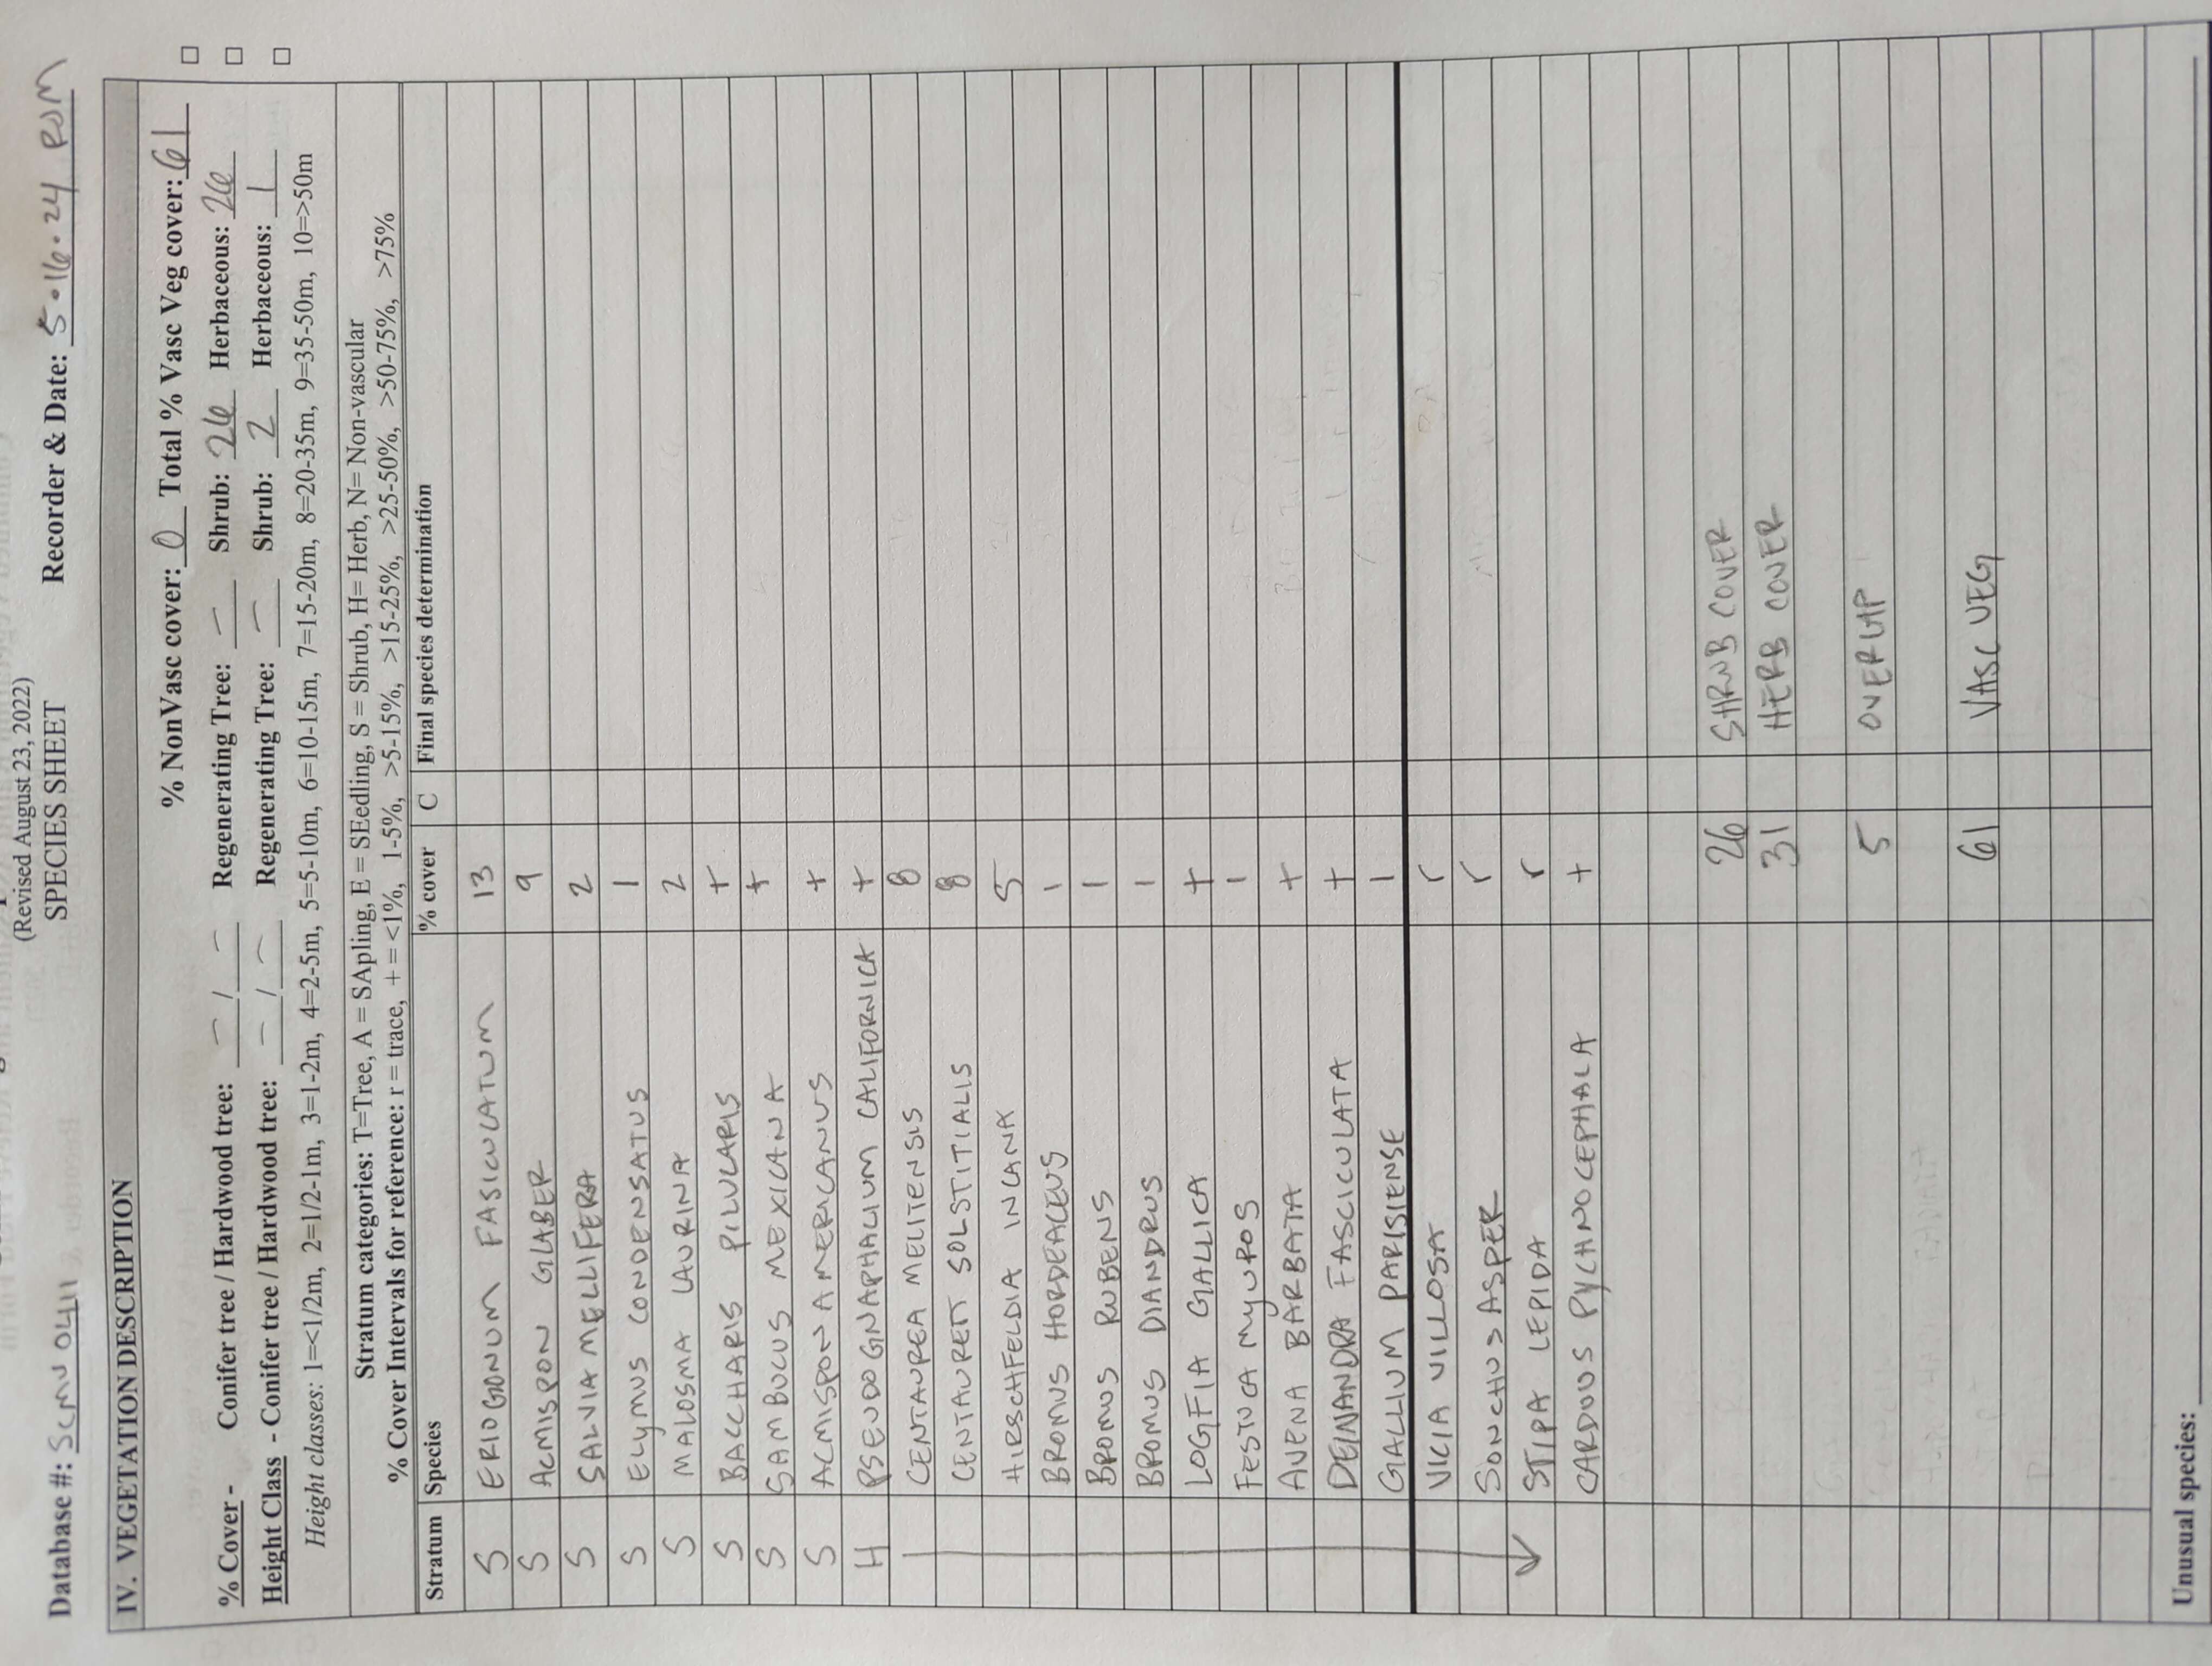 (Revised August 23, 2022)
SPECIES SHEET
Database #: SCMU0411 Recorder & Date: 5.16.24 RJM
IV. VEGETATION DESCRIPTION
% NonVasc cover: 0 Total % Vasc Veg cover: 61
% Cover - Conifer tree / Hardwood tree: - / - Regenerating Tree: - Shrub: 26 Herbaceous: 26
Height Class - Conifer tree / Hardwood tree: - / - Regenerating Tree: - Shrub: 2 Herbaceous: 1
Height classes: 1=<1/2m, 2=1/2-1m, 3=1-2m, 4=2-5m, 5=5-10m, 6=10-15m, 7=15-20m, 8=20-35m, 9=35-50m, 10=>50m
Stratum categories: T=Tree, A = SApling, E = SEedling, S = Shrub, H= Herb, N= Non-vascular
% Cover Intervals for reference: r = trace, + = <1%, 1-5%, >5-15%, >15-25%, >25-50%, >50-75%, >75%
Stratum Species % cover C Final species determination
S ERIOGONUM FASICULATUM 13
S ACMISPON GLABER 9
S SALVIA MELLIFERA 2
S ELYMUS CONDENSATUS 1
S MALOSMA LAURINA 2
S BACCHARIS PILULARIS +
S SAMBUCUS MEXICANA +
S ACMISPON AMERICANUS +
H PSEUDOGNAPHALIUM CALIFORNICA +
CENTAUREA MELITENSIS 8
CENTAUREA SOLSTITIALIS 8
HIRSCHFELDIA INCANA 5
BROMUS HORDEACEUS 1
BROMUS RUBENS 1
BROMUS DIANDRUS 1
LOGFIA GALLICA +
FESTUCA MYUROS 1
AVENA BARBATA +
DEINANDRA FASCICULATA +
GALLIUM PARISIENSE 1
VICIA VILLOSA r
SONCHUS ASPER r
STIPA LEPIDA r
CARDUUS PYCHNOCEPHALA +
26 SHRUB COVER
31 HERB COVER
5 OVERLAP
61 VASC VEG
Unusual species: